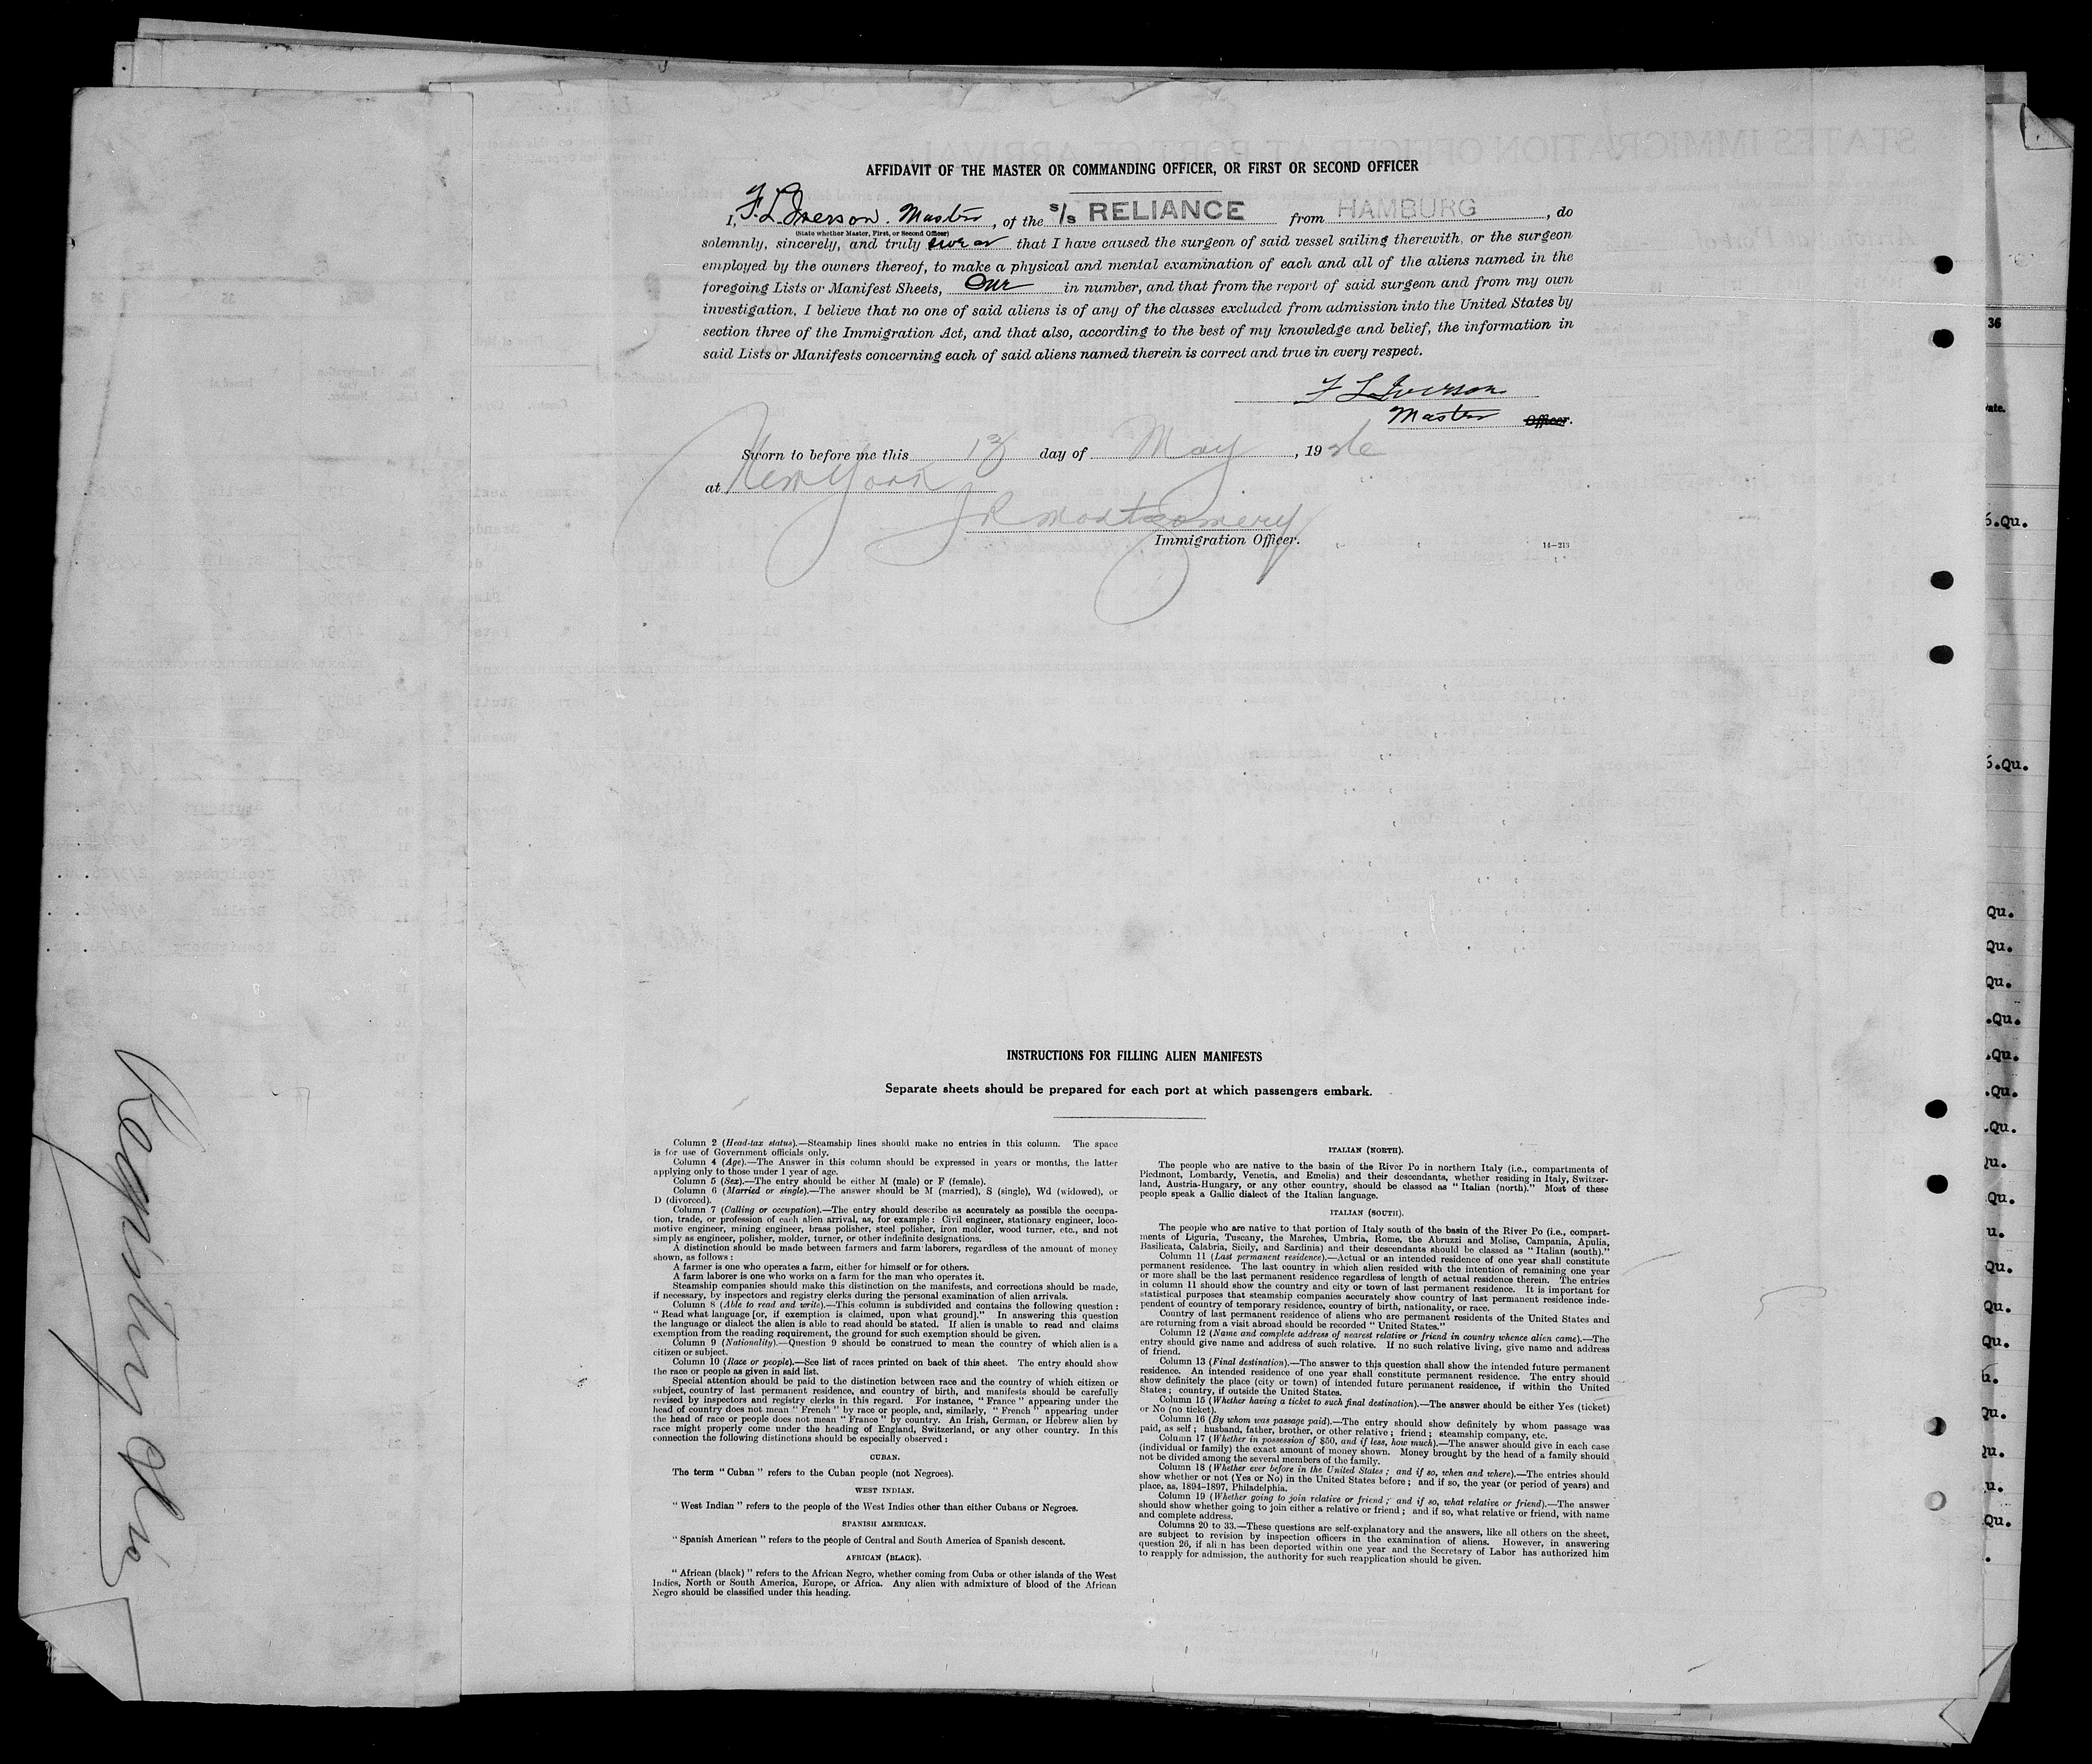 AFFIDAVIT OF THE MASTER OR COMMANDING OFFICER, OR FIRST OR SECOND OFFICER
I, F. L. Iverson. Master, of the s/s RELIANCE from HAMBURG, do
(State whether Master, First, or Second Officer)
solemnly, sincerely, and truly swear that I have caused the surgeon of said vessel sailing therewith, or the surgeon
employed by the owners thereof, to make a physical and mental examination of each and all of the aliens named in the
foregoing Lists or Manifest Sheets, One in number, and that from the report of said surgeon and from my own
investigation, I believe that no one of said aliens is of any of the classes excluded from admission into the United States by
section three of the Immigration Act, and that also, according to the best of my knowledge and belief, the information in
said Lists or Manifests concerning each of said aliens named therein is correct and true in every respect.
F L Iverson
Master Officer.
Sworn to before me this 13 day of May, 1926
at New York
J R Montgomery
Immigration Officer.
14-213
INSTRUCTIONS FOR FILLING ALIEN MANIFESTS
Separate sheets should be prepared for each port at which passengers embark.
Column 2 (Head-tax status).—Steamship lines should make no entries in this column. The space
is for use of Government officials only.
Column 4 (Age).—The Answer in this column should be expressed in years or months, the latter
applying only to those under 1 year of age.
Column 5 (Sex).—The entry should be either M (male) or F (female).
Column 6 (Married or single).—The answer should be M (married), S (single), Wd (widowed), or
D (divorced).
Column 7 (Calling or occupation).—The entry should describe as accurately as possible the occupa-
tion, trade, or profession of each alien arrival, as, for example: Civil engineer, stationary engineer, loco-
motive engineer, mining engineer, brass polisher, steel polisher, iron molder, wood turner, etc., and not
simply as engineer, polisher, molder, turner, or other indefinite designations.
A distinction should be made between farmers and farm laborers, regardless of the amount of money
shown, as follows:
A farmer is one who operates a farm, either for himself or for others.
A farm laborer is one who works on a farm for the man who operates it.
Steamship companies should make this distinction on the manifests, and corrections should be made,
if necessary, by inspectors and registry clerks during the personal examination of alien arrivals.
Column 8 (Able to read and write).—This column is subdivided and contains the following question:
“Read what language [or, if exemption is claimed, upon what ground].” In answering this question
the language or dialect the alien is able to read should be stated. If alien is unable to read and claims
exemption from the reading requirement, the ground for such exemption should be given.
Column 9 (Nationality).—Question 9 should be construed to mean the country of which alien is a
citizen or subject.
Column 10 (Race or people).—See list of races printed on back of this sheet. The entry should show
the race or people as given in said list.
Special attention should be paid to the distinction between race and the country of which citizen or
subject, country of last permanent residence, and country of birth, and manifests should be carefully
revised by inspectors and registry clerks in this regard. For instance, “France” appearing under the
head of country does not mean “French” by race or people, and, similarly, “French” appearing under
the head of race or people does not mean “France” by country. An Irish, German, or Hebrew alien by
race might properly come under the heading of England, Switzerland, or any other country. In this
connection the following distinctions should be especially observed:
CUBAN.
The term “Cuban” refers to the Cuban people (not Negroes).
WEST INDIAN.
“West Indian” refers to the people of the West Indies other than either Cubans or Negroes.
SPANISH AMERICAN.
“Spanish American” refers to the people of Central and South America of Spanish descent.
AFRICAN (BLACK).
“African (black)” refers to the African Negro, whether coming from Cuba or other islands of the West
Indies, North or South America, Europe, or Africa. Any alien with admixture of blood of the African
Negro should be classified under this heading.
ITALIAN (NORTH).
The people who are native to the basin of the River Po in northern Italy (i.e., compartments of
Piedmont, Lombardy, Venetia, and Emelia) and their descendants, whether residing in Italy, Switzer-
land, Austria-Hungary, or any other country, should be classed as “Italian (north).” Most of these
people speak a Gallic dialect of the Italian language.
ITALIAN (SOUTH).
The people who are native to that portion of Italy south of the basin of the River Po (i.e., compart-
ments of Liguria, Tuscany, the Marches, Umbria, Rome, the Abruzzi and Molise, Campania, Apulia,
Basilicata, Calabria, Sicily, and Sardinia) and their descendants should be classed as “Italian (south).”
Column 11 (Last permanent residence).—Actual or an intended residence of one year shall constitute
permanent residence. The last country in which alien resided with the intention of remaining one year
or more shall be the last permanent residence regardless of length of actual residence therein. The entries
in column 11 should show the country and city or town of last permanent residence. It is important for
statistical purposes that steamship companies accurately show country of last permanent residence inde-
pendent of country of temporary residence, country of birth, nationality, or race.
Country of last permanent residence of aliens who are permanent residents of the United States and
are returning from a visit abroad should be recorded “United States.”
Column 12 (Name and complete address of nearest relative or friend in country whence alien came).—The
entry should give name and address of such relative. If no such relative living, give name and address
of friend.
Column 13 (Final destination).—The answer to this question shall show the intended future permanent
residence. An intended residence of one year shall constitute permanent residence. The entry should
show definitely the place (city or town) of intended future permanent residence, if within the United
States; country, if outside the United States.
Column 15 (Whether having a ticket to such final destination).—The answer should be either Yes (ticket)
or No (no ticket).
Column 16 (By whom was passage paid).—The entry should show definitely by whom passage was
paid, as self; husband, father, brother, or other relative; friend; steamship company, etc.
Column 17 (Whether in possession of $50, and if less, how much).—The answer should give in each case
(individual or family) the exact amount of money shown. Money brought by the head of a family should
not be divided among the several members of the family.
Column 18 (Whether ever before in the United States; and if so, when and where).—The entries should
show whether or not (Yes or No) in the United States before; and if so, the year (or period of years) and
place, as, 1894–1897, Philadelphia.
Column 19 (Whether going to join relative or friend; and if so, what relative or friend).—The answer
should show whether going to join either a relative or friend; and if so, what relative or friend, with name
and complete address.
Columns 20 to 33.—These questions are self-explanatory and the answers, like all others on the sheet,
are subject to revision by inspection officers in the examination of aliens. However, in answering
question 26, if alien has been deported within one year and the Secretary of Labor has authorized him
to reapply for admission, the authority for such reapplication should be given.
36